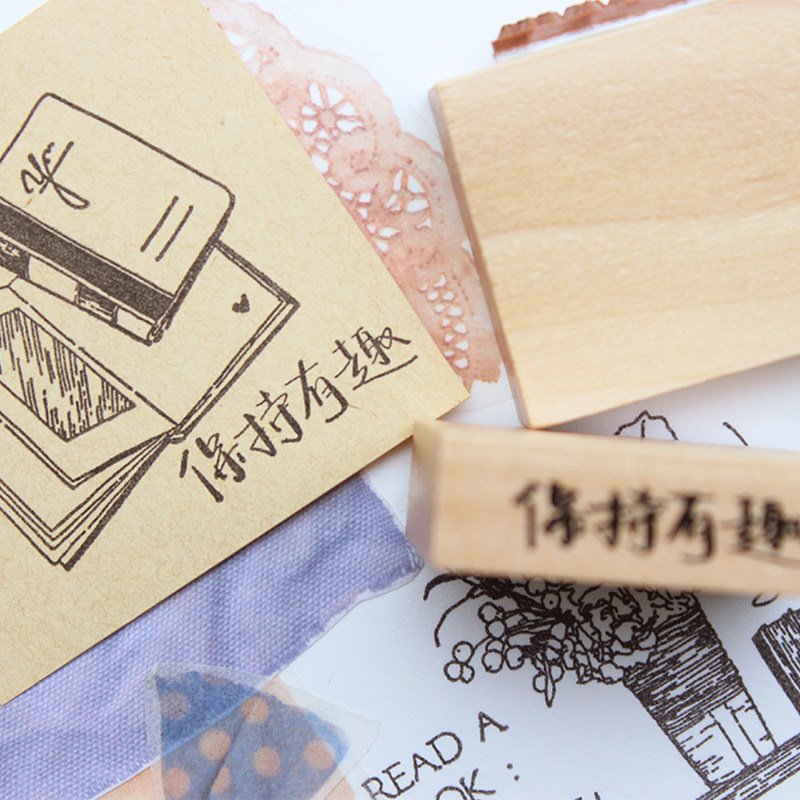 保持有趣
保持有趣
READ A
OK :